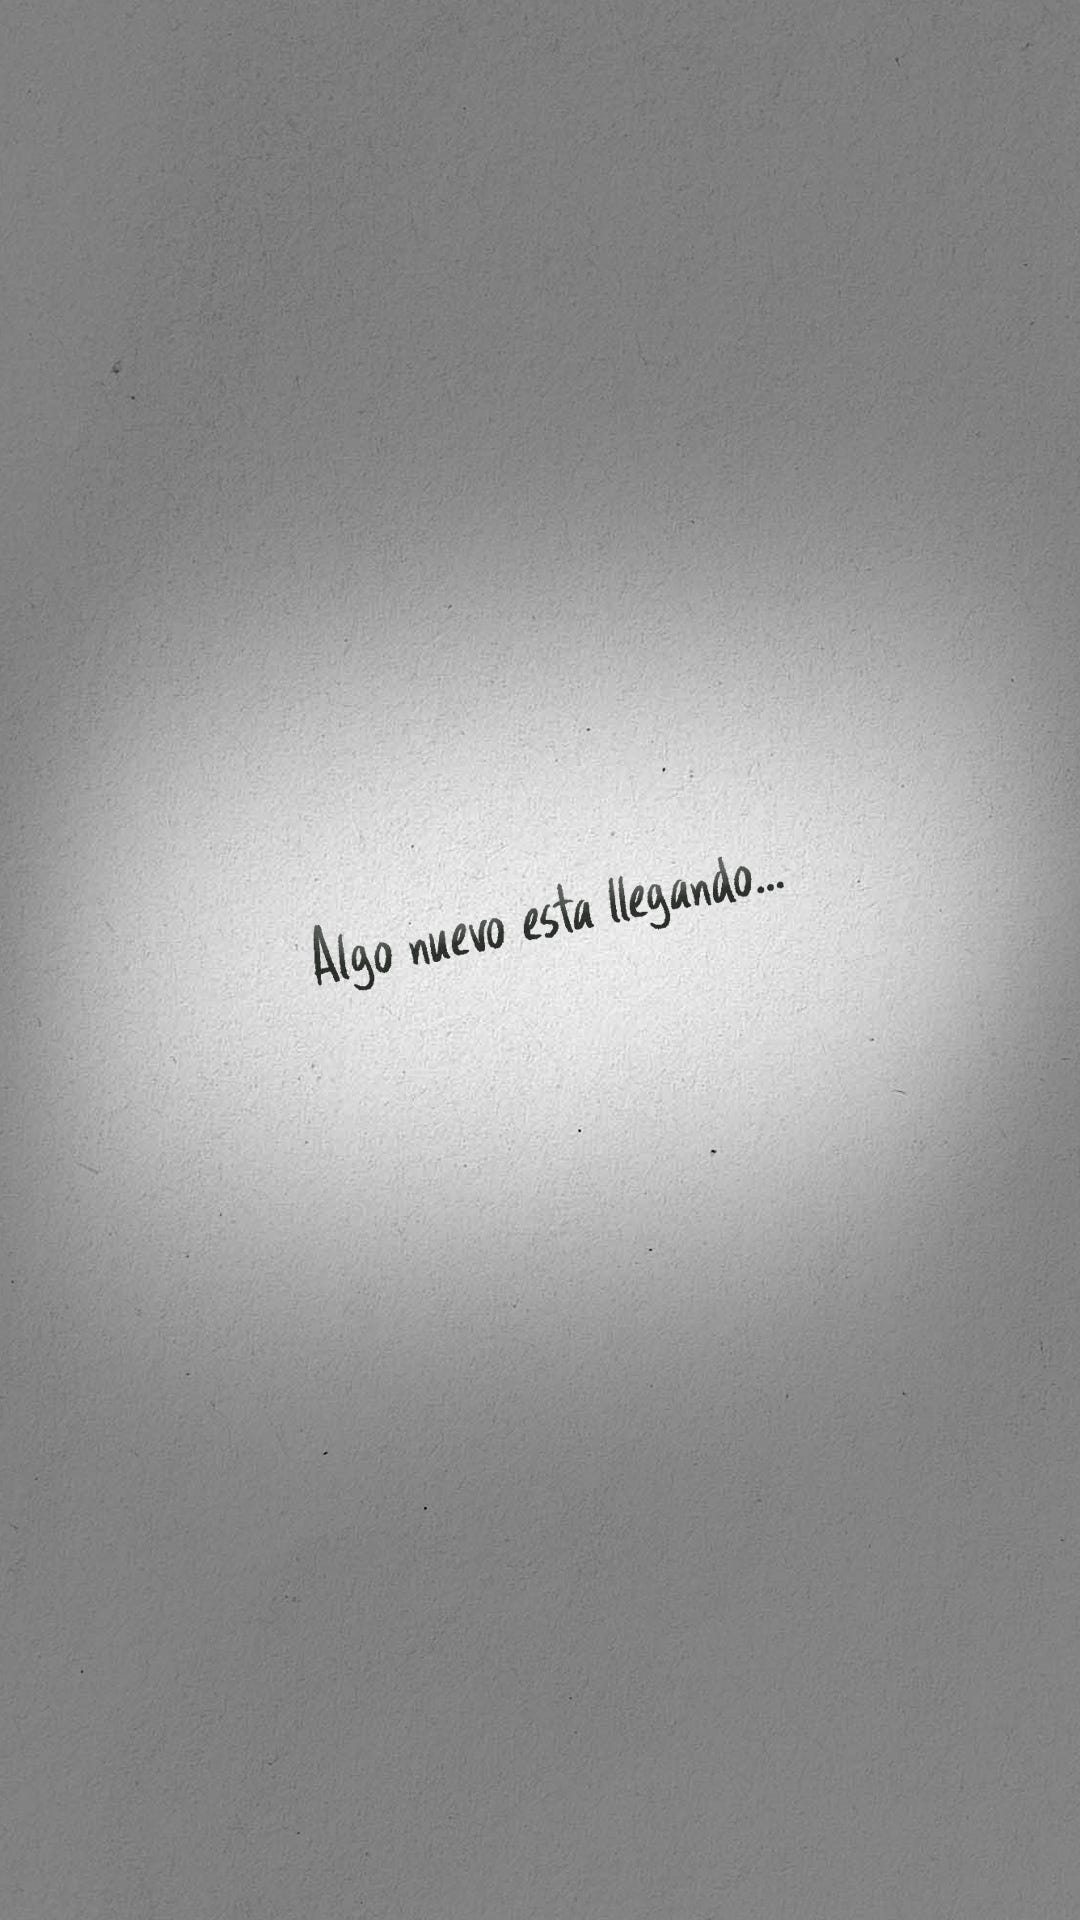 Algo nuevo esta llegando...